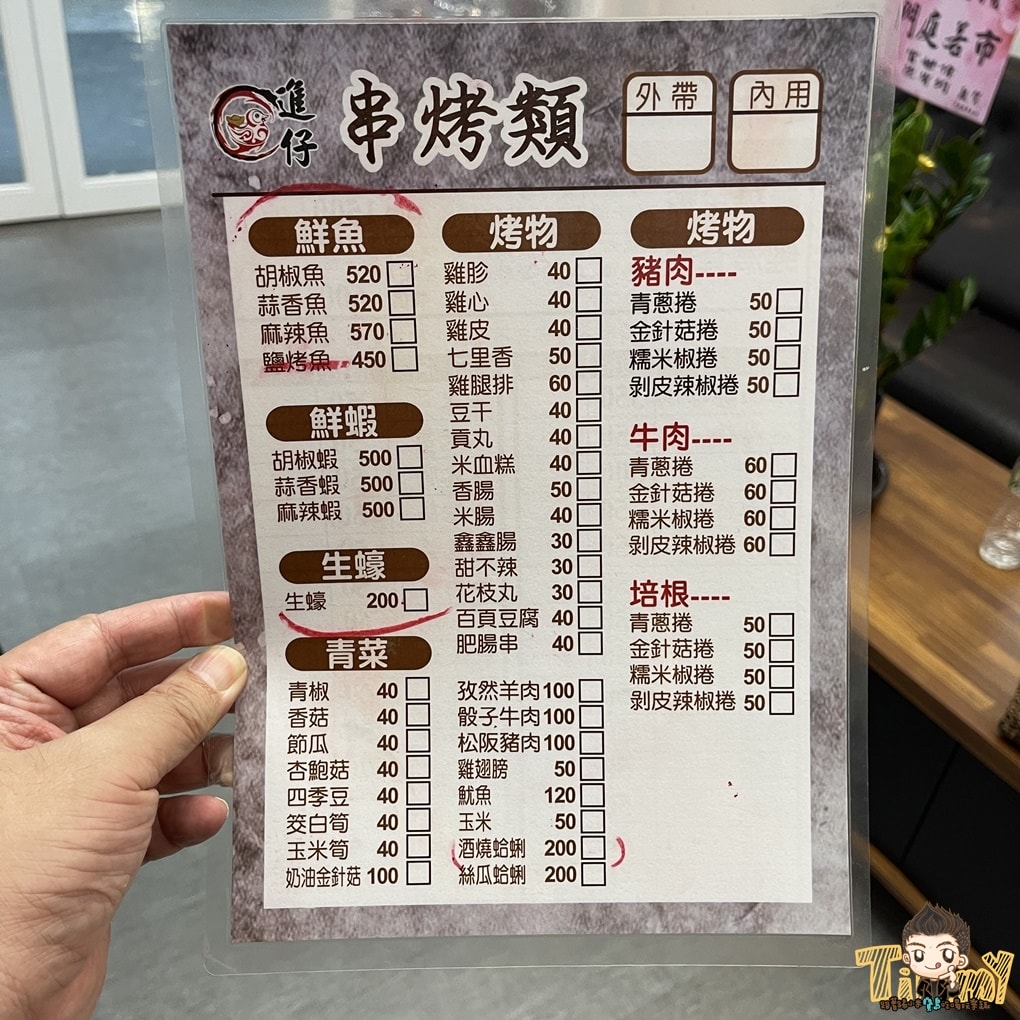 門庭若市
進仔
串烤類
外帶
內用
鮮魚
胡椒魚 520
蒜香魚 520
麻辣魚 570
鹽烤魚 450
鮮蝦
胡椒蝦 500
蒜香蝦 500
麻辣蝦 500
生蠔
生蠔 200
青菜
青椒 40
香菇 40
節瓜 40
杏鮑菇 40
四季豆 40
筊白筍 40
玉米筍 40
奶油金針菇 100
烤物
雞胗 40
雞心 40
雞皮 40
七里香 50
雞腿排 60
豆干 40
貢丸 40
米血糕 40
香腸 50
米腸 40
鑫鑫腸 30
甜不辣 30
花枝丸 30
百頁豆腐 40
肥腸串 40
孜然羊肉 100
骰子牛肉 100
松阪豬肉 100
雞翅膀 50
魷魚 120
玉米 50
酒燒蛤蜊 200
絲瓜蛤蜊 200
烤物
豬肉----
青蔥捲 50
金針菇捲 50
糯米椒捲 50
剝皮辣椒捲 50
牛肉----
青蔥捲 60
金針菇捲 60
糯米椒捲 60
剝皮辣椒捲 60
培根----
青蔥捲 50
金針菇捲 50
糯米椒捲 50
剝皮辣椒捲 50